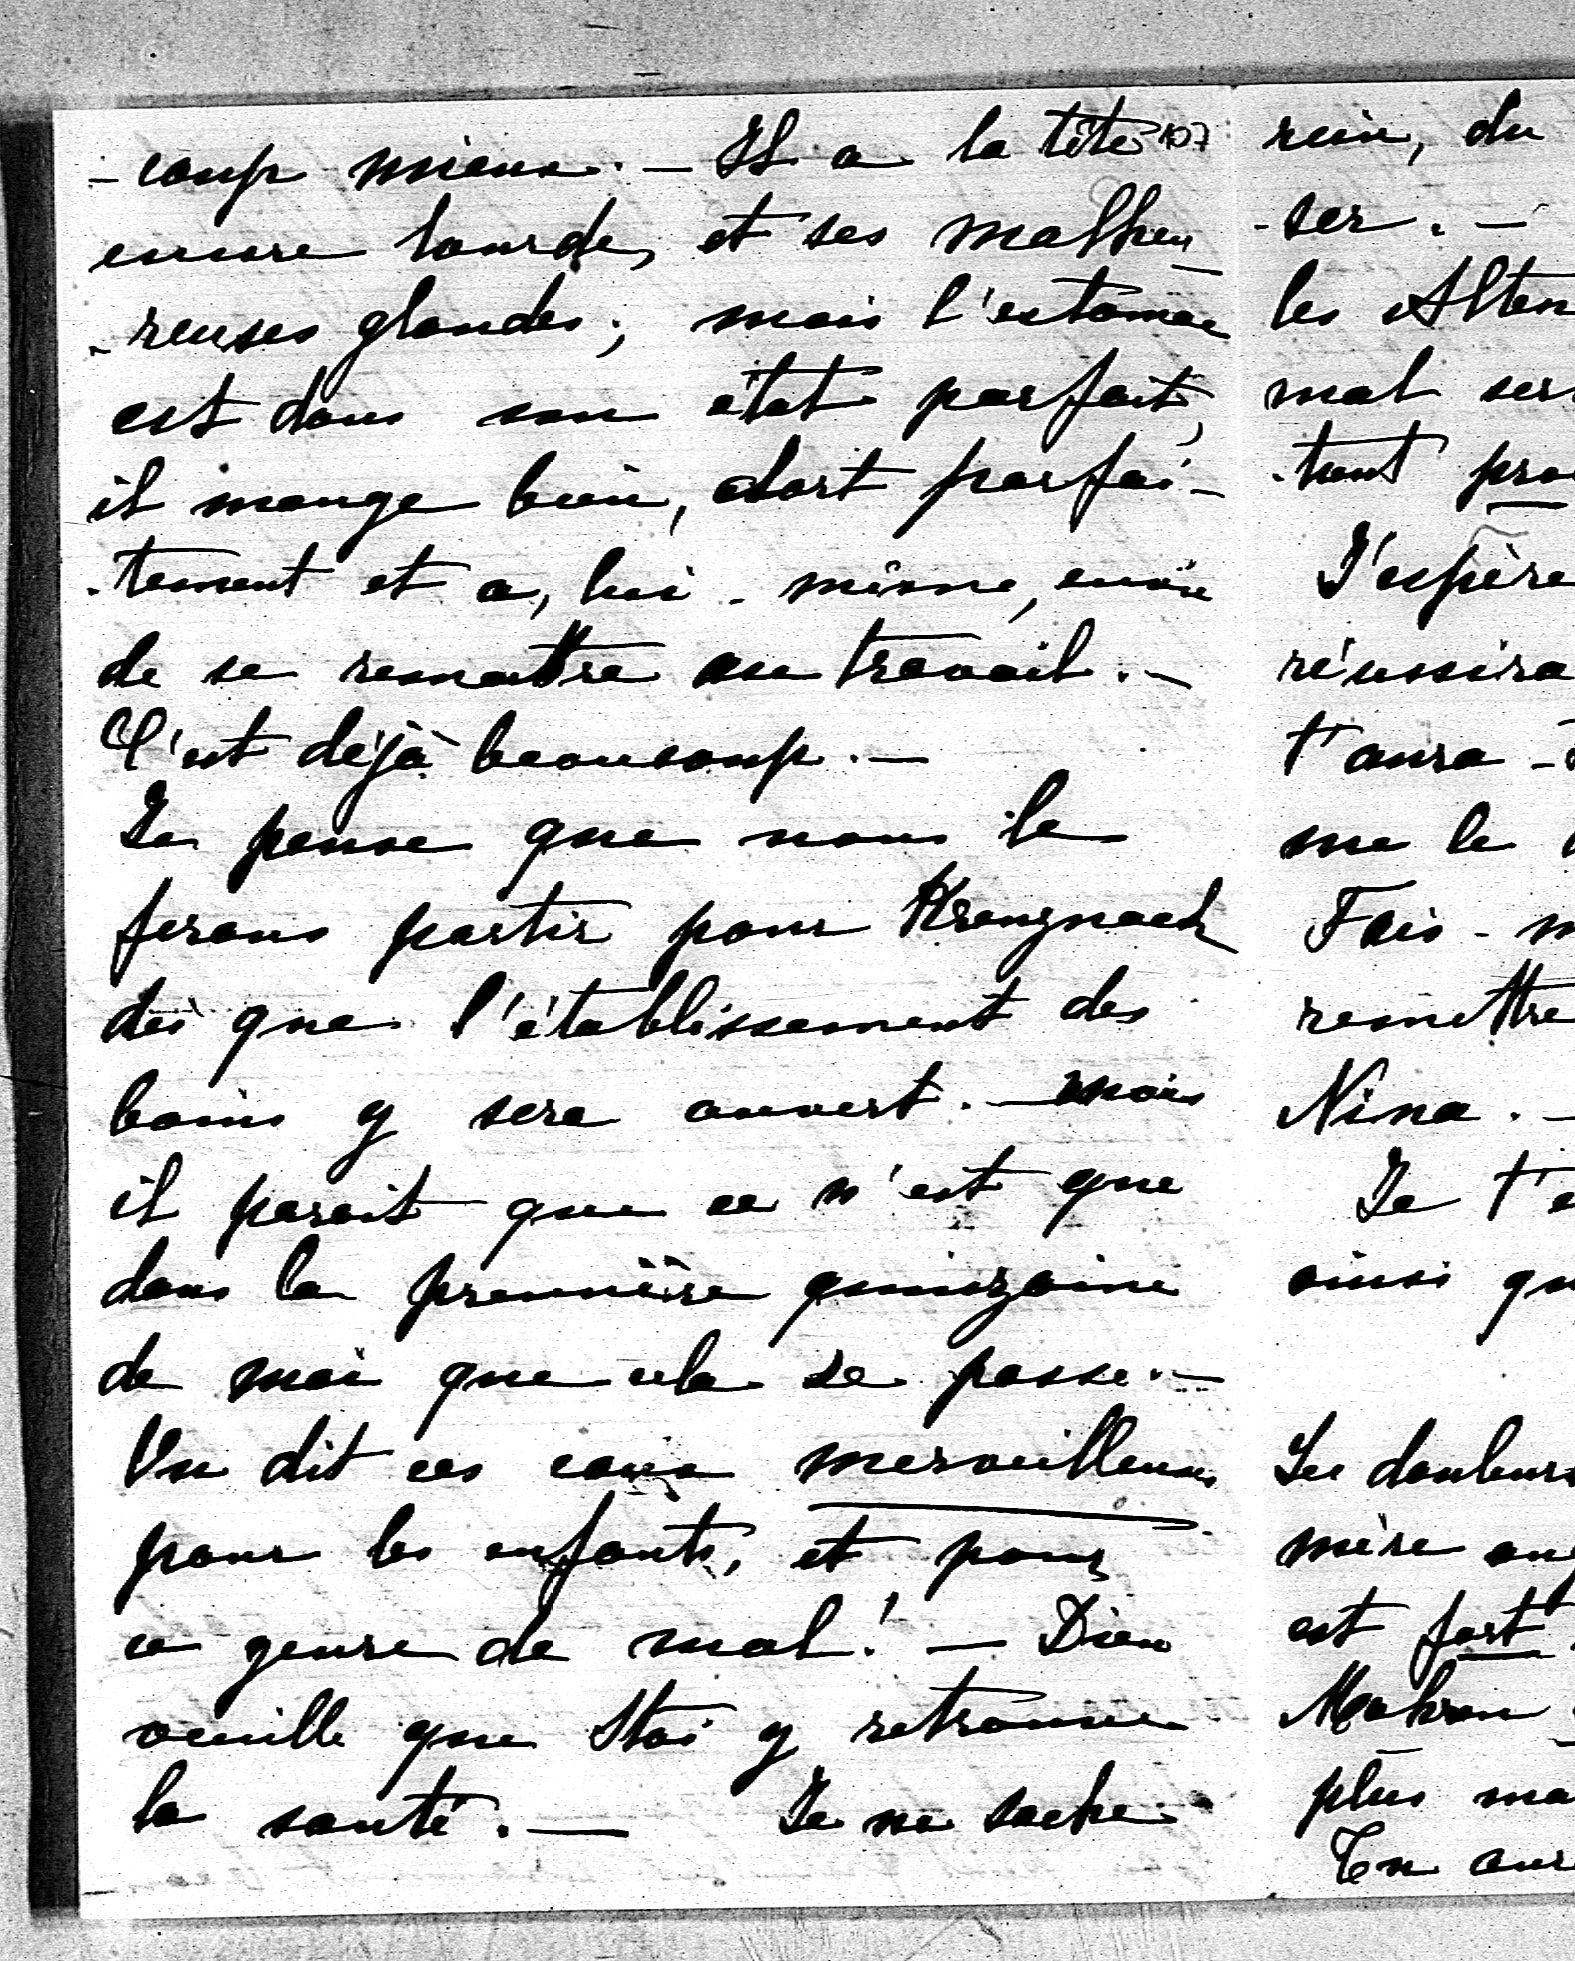 -coup mieux. — Il a la tête 107
encore lourde, et ses malheu
-reuses glandes; mais l'estomac
est dans son état parfait,
il mange bien, dort parfai-
-tement et a, lui-même, envie
de se remettre au travail. —
C'est déjà beaucoup. —
Je pense que nous le
ferons partir pour Kreuznach
dès que l'établissement des
bains y sera ouvert. — mais
il parait que ce n'est que
dans la première quinzaine
de mai que cela se passe. —
On dit ces eaux merveilleuses
pour les enfants, et pour
ce genre de mal! — Dieu
veuille que Stoi y retrouve
la santé. — Je ne sache
rein, du
-ser. —
les Alten
mal ser
-tant pro
J'espère
réussira
t'aura-
me le
Fais-m
remettre
Nina. —
Je t'e
ainsi qu
Les douleurs
mère
est fort
plus ma
En aur